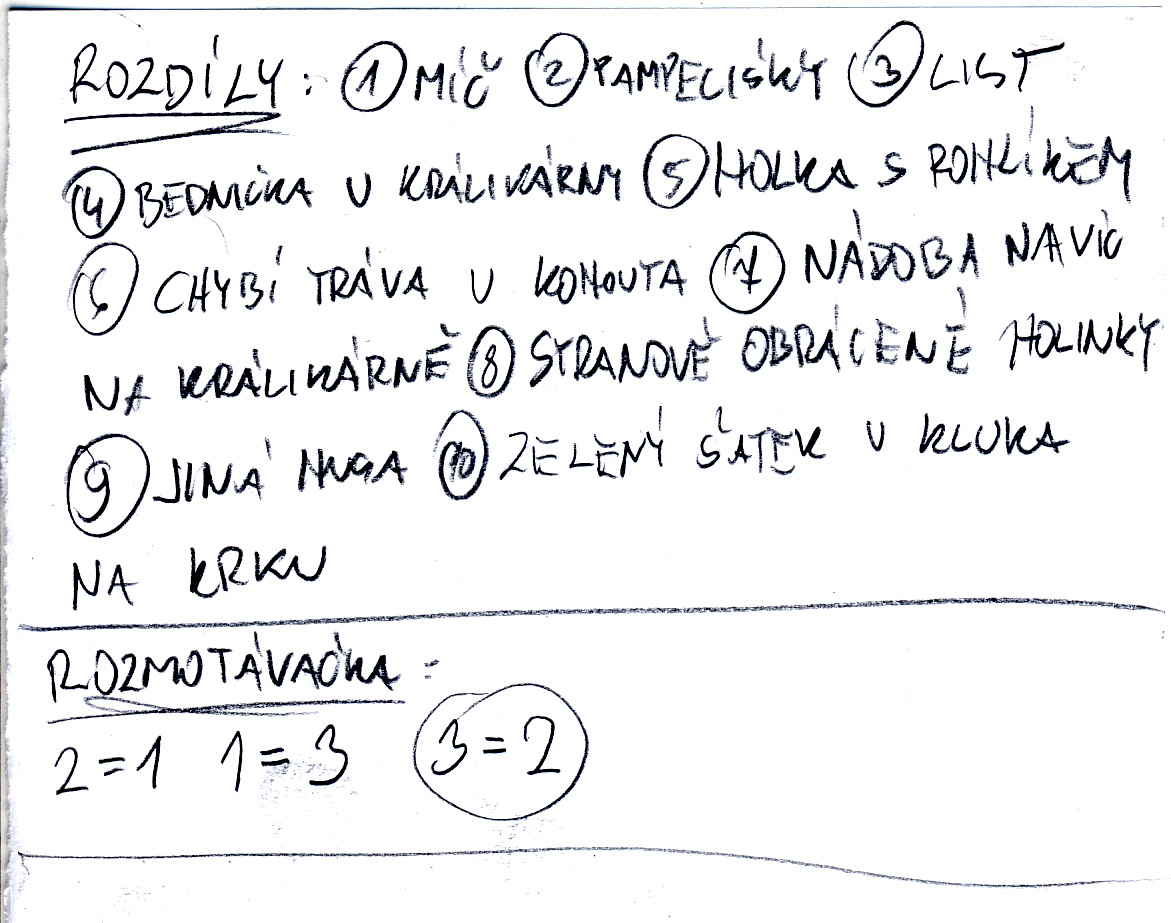 ROZDÍLY: ① MÍČ ② PAMPELIŠKY ③ LIST
④ BEDNIČKA U KRÁLIKÁRNY ⑤ HOLKA S ROHLÍKEM
⑥ CHYBÍ TRÁVA U KOHOUTA ⑦ NÁDOBA NAVÍC
NA KRÁLIKÁRNĚ ⑧ STRANOVĚ OBRÁCENÉ HOLINKY
⑨ JINÁ NOGA ⑩ ZELENÝ ŠÁTEK U KLUKA
NA KRKU
ROZMOTÁVAČKA:
2=1 1=3 3=2